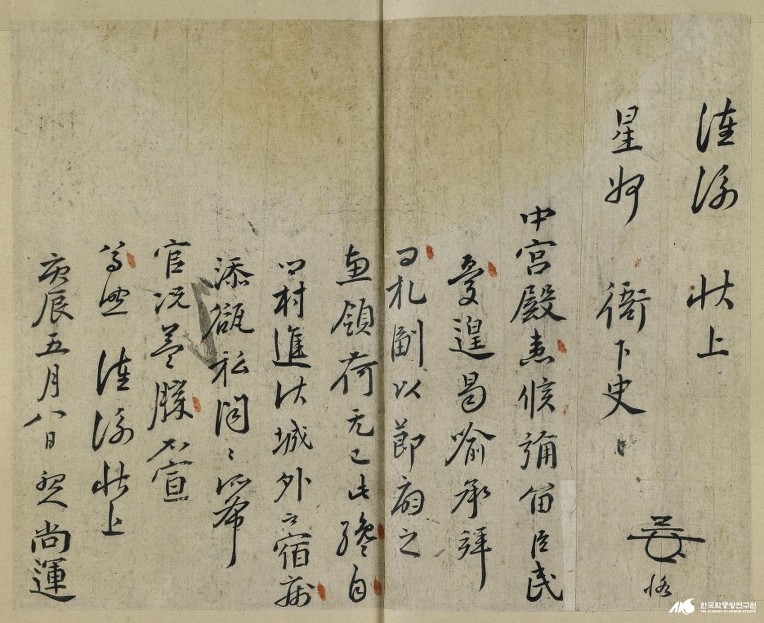 謹謝 狀上
星州 衙下史
中宮殿患候彌留臣民
憂遑曷喻承拜
手札副以節扇之
惠領荷无已此纔自
村進伏城外之宿病
添 私悶〻所希
官況益勝不宣
尊照 謹謝狀上
庚辰五月八日 尚運
한국학중앙연구원